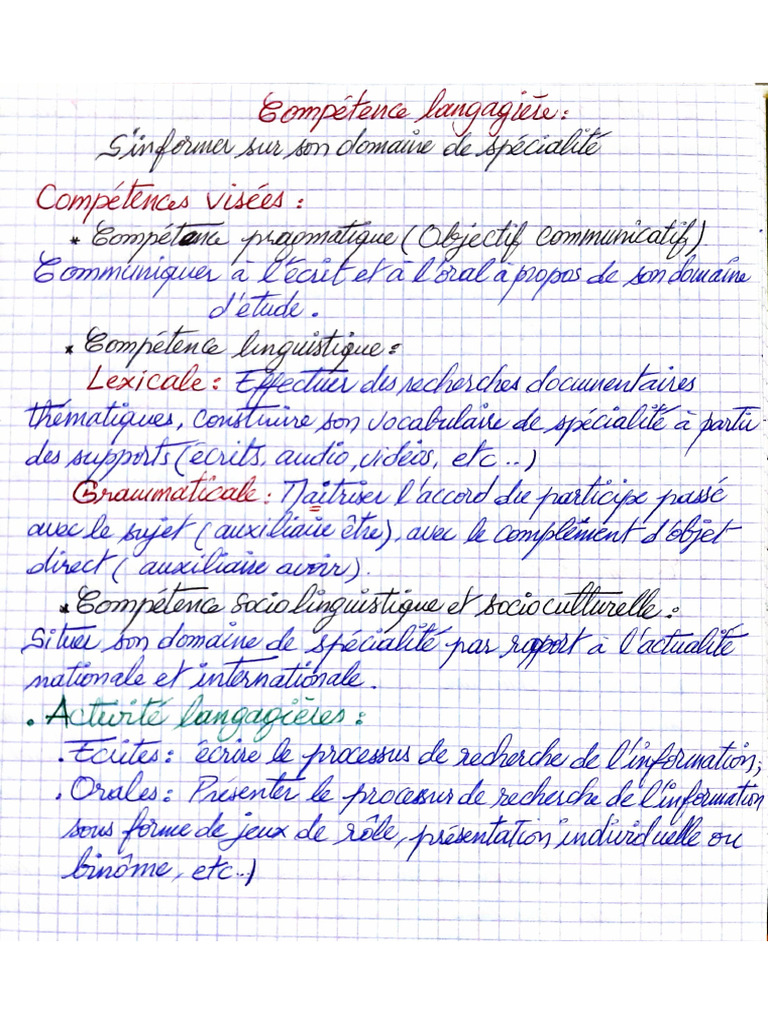 Compétence langagière :
S'informer sur son domaine de spécialité
Compétences visées :
* Compétence pragmatique (Objectif communicatif)
Communiquer à l'écrit et à l'oral à propos de son domaine
d'étude.
* Compétence linguistique :
Lexicale : Effectuer des recherches documentaires
thématiques, construire son vocabulaire de spécialité à partir
des supports (écrits, audio, vidéos, etc...)
Grammaticale : Maîtriser l'accord du participe passé
avec le sujet (auxiliaire être), avec le complément d'objet
direct (auxiliaire avoir).
* Compétence sociolinguistique et socioculturelle :
Situer son domaine de spécialité par rapport à l'actualité
nationale et internationale.
. Activité langagières :
. Ecrites : écrire le processus de recherche de l'information ;
. Orales : Présenter le processus de recherche de l'information
sous forme de jeux de rôle, présentation individuelle ou
binôme, etc...)